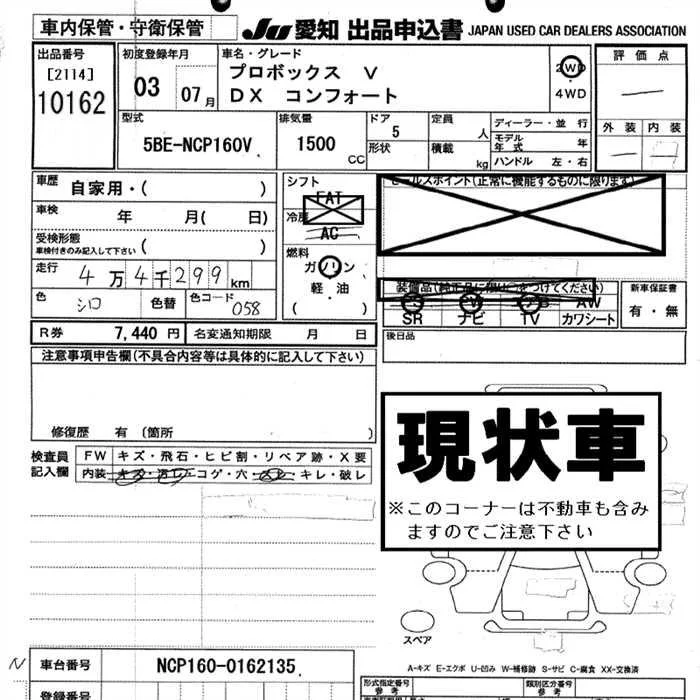 車内保管・守衛保管
JU 愛知 出品申込書 JAPAN USED CAR DEALERS ASSOCIATION
出品番号
[2114]
10162
初度登録年月
03 07月
車名・グレード
プロボックス V
DX コンフォート
2WD
・
4WD
評価点
外装 内装
型式
5BE-NCP160V
排気量
1500
CC
ドア
5
形状
定員
人
積載
kg
ディーラー・並行
モデル年式 年
ハンドル 左・右
車歴 自家用・( )
車検 年 月( 日)
受検形態
車検付きのみ記入して下さい ( )
走行 4万4千299km
色 シロ 色替 色コード 058
シフト
FAT
冷房
AC
燃料
ガソリン
軽・油
( )
セールスポイント(正常に機能するものに限ります)
AW
SR ナビ TV カワシート
新車保証書
有・無
R券 7,440円 名変通知期限 月 日
後日品
注意事項申告欄(不具合内容等は具体的に記入して下さい)
修復歴 有 〔箇所 〕
検査員記入欄
FW キズ・飛石・ヒビ割・リペア跡・X要
内装 キズ・汚レ・コゲ・穴・スレ・キレ・破レ
現状車
※このコーナーは不動車も含み
ますのでご注意下さい
スペア
A-キズ E-エクボ U-凹み W-補修跡 S-サビ C-腐食 XX-交換済
N 車台番号 NCP160-0162135
登録番号
形式指定番号
参考
類別区分番号
参考